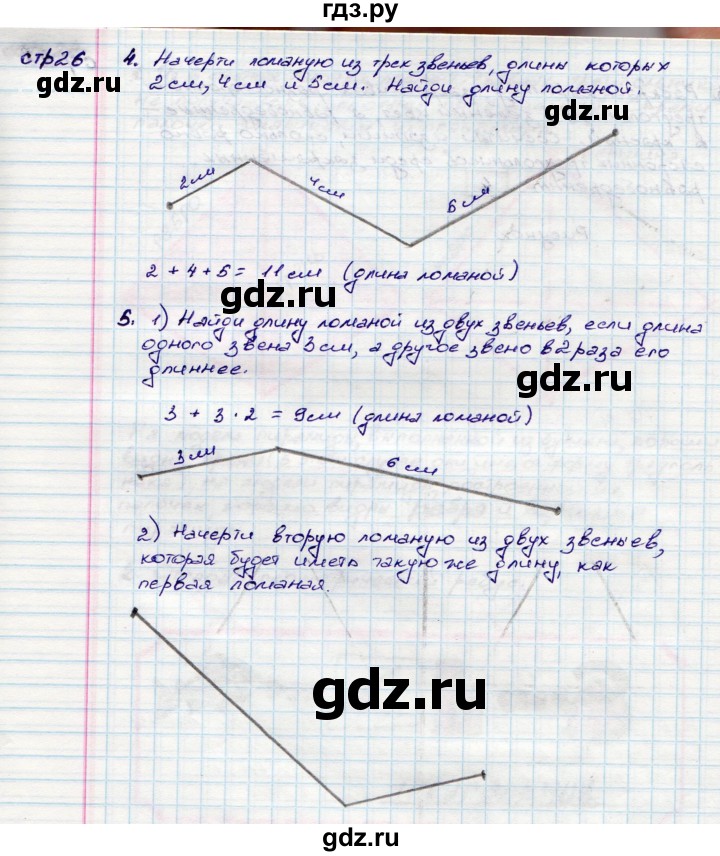 гдз.ру
стр26 4. Начерти ломаную из трех звеньев, длины которых
gdz.ru 2см, 4см и 5см. Найди длину ломаной.
gdz.ru
2см
4см
5см
2 + 4 + 5 = 11см (длина ломаной)
gdz.ru
5. 1) Найди длину ломаной из двух звеньев, если длина
одного звена 3см, а другое звено в 2 раза его
длиннее.
gdz.ru
3 + 3 · 2 = 9см (длина ломаной)
3см
6см
2) Начерти вторую ломаную из двух звеньев,
которая будет иметь такую же длину, как
первая ломаная.
gdz.ru
gdz.ru